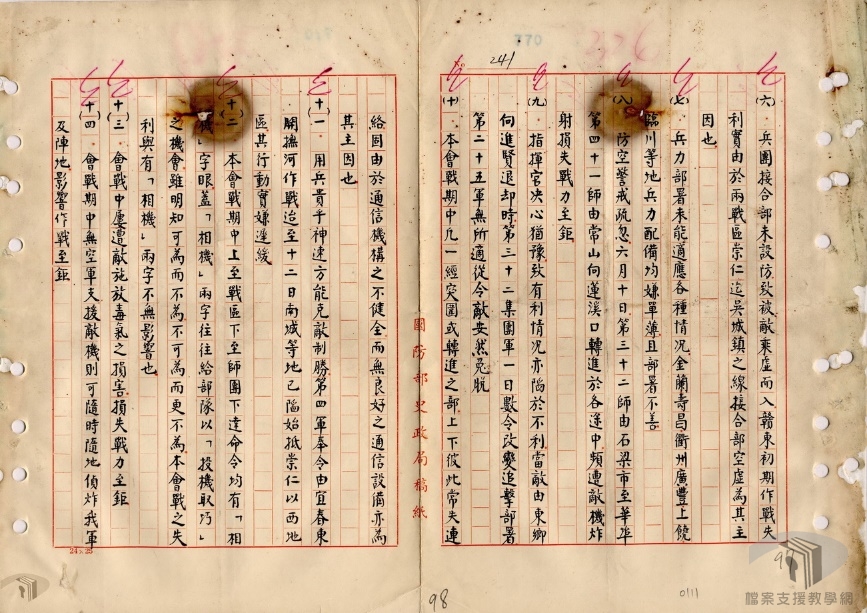 241
(六)、兵團接合部未設防致被敵乘虛而入贛東初期作戰失
利實由於兩戰區崇仁迄吳城鎮之線接合部空虛為其主
因也
(七)、兵力部署未能適應各種情況金蘭壽昌衢州廣豐上饒
臨川等地兵力配備均嫌單薄且部署不善
(八)、防空警戒疏忽六月十日第三十二師由石梁市至華埠
第四十一師由常山向蓮溪口轉進於各途中頻遭敵機炸
射損失戰力至鉅
(九)、指揮官決心猶豫致有利情況亦陷於不利當敵由東鄉
向進賢退却時第三十二集團軍一日數令改變追擊部署
第二十五軍無所適從令敵安然兔脫
(十)、本會戰期中凡一經突圍或轉進之部上下彼此常失連
國防部史政局稿紙
絡固由於通信機構之不健全而無良好之通信設備亦為
其主因也
(十一)、用兵貴乎神速方能克敵制勝第四軍奉令由宜春東
開撫河作戰迨至十二日南城等地已陷始抵崇仁以西地
區其行動實嫌遲緩
(十二)、本會戰期中上至戰區下至師團下達命令均有「相
機」字眼蓋「相機」兩字往往給部隊以「投機取巧」
之機會雖明知可為而不為不可為而更不為本會戰之失
利與有「相機」兩字不無影響也
(十三)、會戰中屢遭敵施放毒氣之損害損失戰力至鉅
(十四)、會戰期中無空軍支援敵機則可隨時隨地偵炸我軍
及陣地影響作戰至鉅
24×25
98
0111
檔案支援教學網